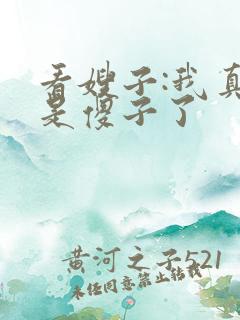 看嫂子:我真
是傻子了
黄河之子521
未经同意禁止转载